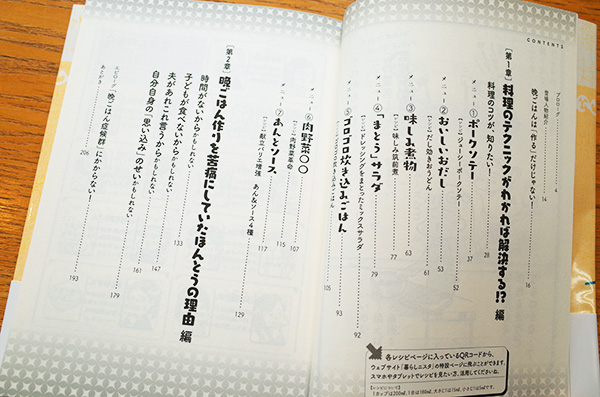 CONTENTS
プロローグ 4
登場人物紹介 14
晩ごはんは「作る」だけじゃない! 16
【第1章】料理のテクニックがわかれば解決する!? 編
料理のコツが、知りたい! 28
メニュー① ポークソテー 37
【ここ】ジューシーポークソテー 52
メニュー② おいしいおだし 53
【ここ】だし効きおうどん 61
メニュー③ 味しみ煮物 63
【ここ】味しみ筑前煮 77
メニュー④ 「まとう」サラダ 79
【ここ】ドレッシングをまとったミックスサラダ 92
メニュー⑤ ゴロゴロ炊き込みごはん 93
105
メニュー⑥ 肉野菜〇〇 107
【ここ】肉野菜革命 115
メニュー⑦ あんとソース 117
【ここ】献立バリエ増強 あん&ソース4種
【第2章】晩ごはん作りを苦痛にしていたほんとうの理由 編 129
時間がないからかもしれない 133
子どもが食べないからかもしれない 147
夫があれこれ言うからかもしれない 161
自分自身の「思い込み」のせいかもしれない 179
エピローグ 「晩ごはん症候群」にかからない! 193
あとがき 206
各レシピページに入っているQRコードから、
ウェブサイト「暮らしニスタ」の特設ページに飛ぶことができます。
スマホやタブレットでレシピを見たい方、活用してくださいね。
1カップは200ml、1合は180ml、大さじ1は15ml、小さじ1は5mlです。